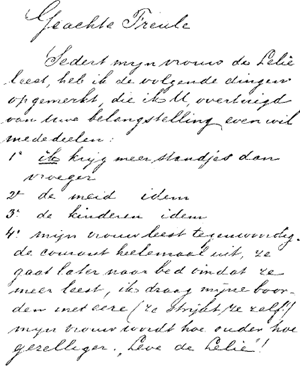 Geachte Freule
Sedert mijn vrouw de Lelie
leest, heb ik de volgende dingen
opgemerkt, die ik U, overtuigd
van Uwe belangstelling even wil
mededeelen:
1º ik kryg meer standjes dan
vroeger
2º de meid idem
3º de kinderen idem
4º mijn vrouw leest tegenwoordig
de courant heelemaal uit, ze
gaat later naar bed omdat ze
meer leest, ik draag mijne boor-
den met eere (ze strijkt ze zelf!)
mijn vrouw wordt hoe ouder hoe
gezelliger. „Leve de Lelie"!